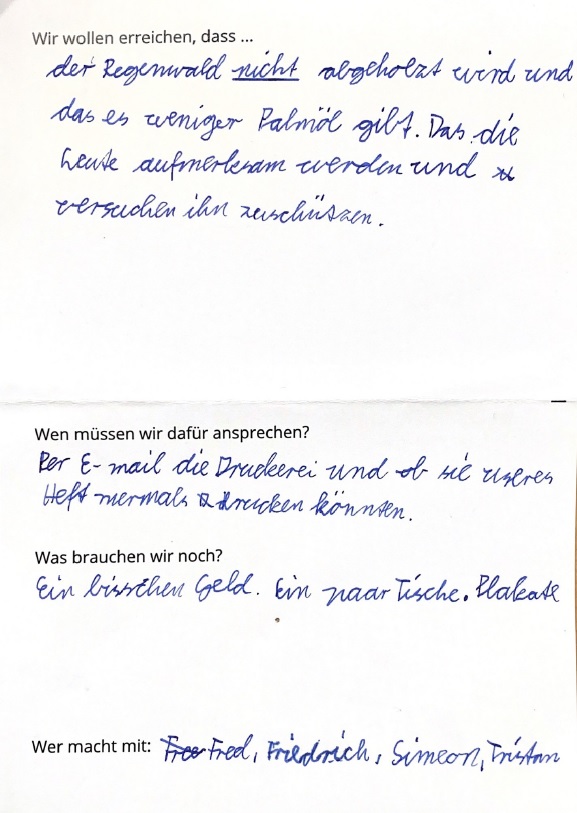 Wir wollen erreichen, dass ...
der Regenwald nicht abgeholzt wird und
das es weniger Palmöl gibt. Das die
Leute aufmerksam werden und
versuchen ihn zuschützen.
Wen müssen wir dafür ansprechen?
Per E-mail die Druckerei und ob sie unseres
Heft mermals drucken könnten.
Was brauchen wir noch?
Ein bisschen Geld. Ein paar Tische. Plakate
Wer macht mit: Fred, Friedrich, Simeon, Tristan